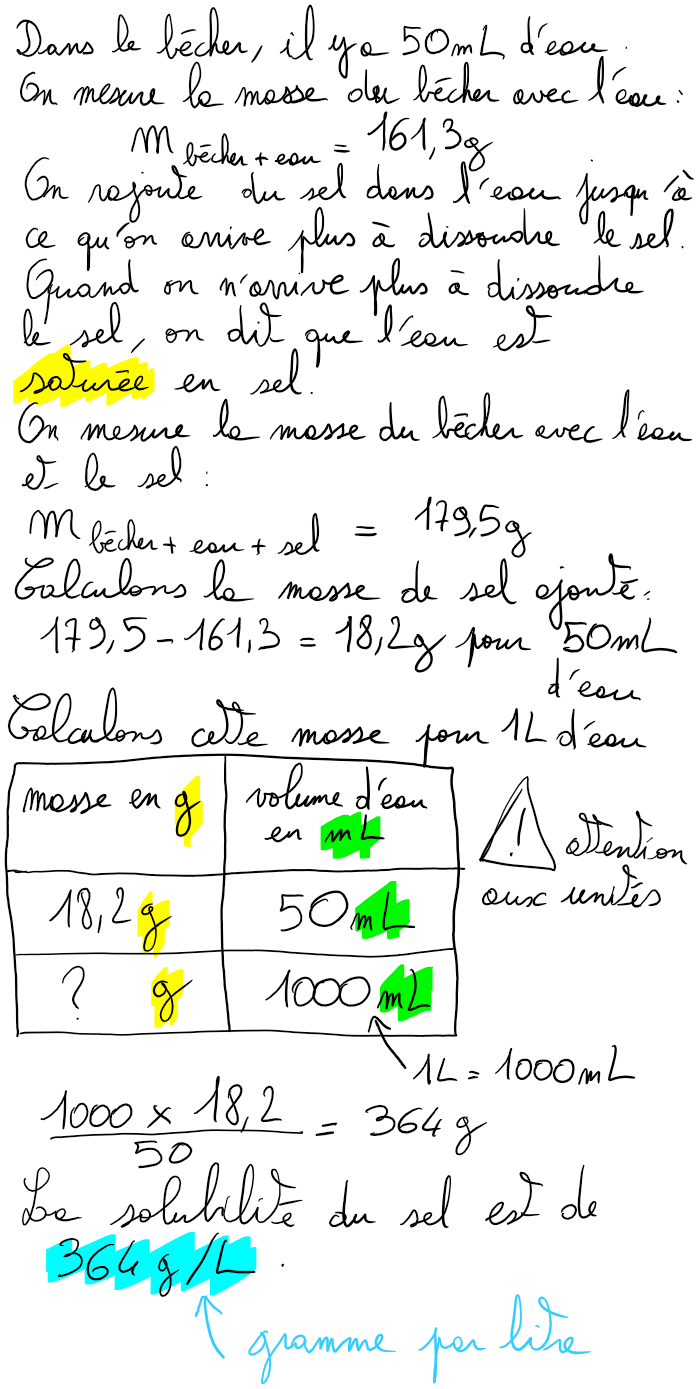 Dans le bécher, il y a 50mL d'eau.
On mesure la masse du bécher avec l'eau :
m bécher + eau = 161,3g
On rajoute du sel dans l'eau jusqu'à
ce qu'on arrive plus à dissoudre le sel.
Quand on n'arrive plus à dissoudre
le sel, on dit que l'eau est
saturée en sel.
On mesure la masse du bécher avec l'eau
et le sel :
m bécher + eau + sel = 179,5g
Calculons la masse de sel ajouté :
179,5 - 161,3 = 18,2g pour 50mL
d'eau
Calculons cette masse pour 1L d'eau
masse en g
volume d'eau
en mL
! attention
aux unités
18,2g 50mL
? g 1000mL
1L = 1000mL
1000 x 18,2
= 364 g
50
La solubilité du sel est de
364 g/L.
gramme par litre